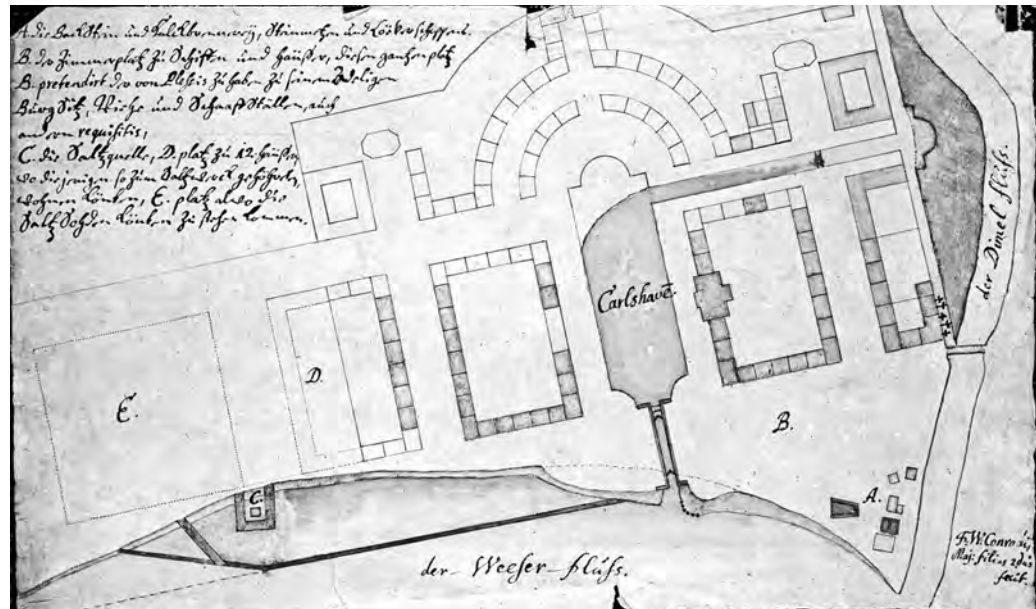 A. die Backstein und Kalckbrennerey, Steinmetzen und
B. der Zimmerplatz zu Schiffen und Häußer, diesen gantzen platz
B. pretendirt der von Plessis zu haben zu seinem Adeligen
Burg Sitz, Viehe und Schaaff Ställen, auch
andern requisitis,
C. die Saltzquelle, D. platz zu 12. Häußer,
wo diejenigen so zum Saltzwerck gehöhren,
wohnen könten, E. platz alwo die
Saltz Sohden könten zu stehen kommen.
Carlshave.
der Dimel fluß.
E.
D.
B.
C.
A.
der Weeser-fluß.
F. W. Conradi
Maj: filius
fecit.